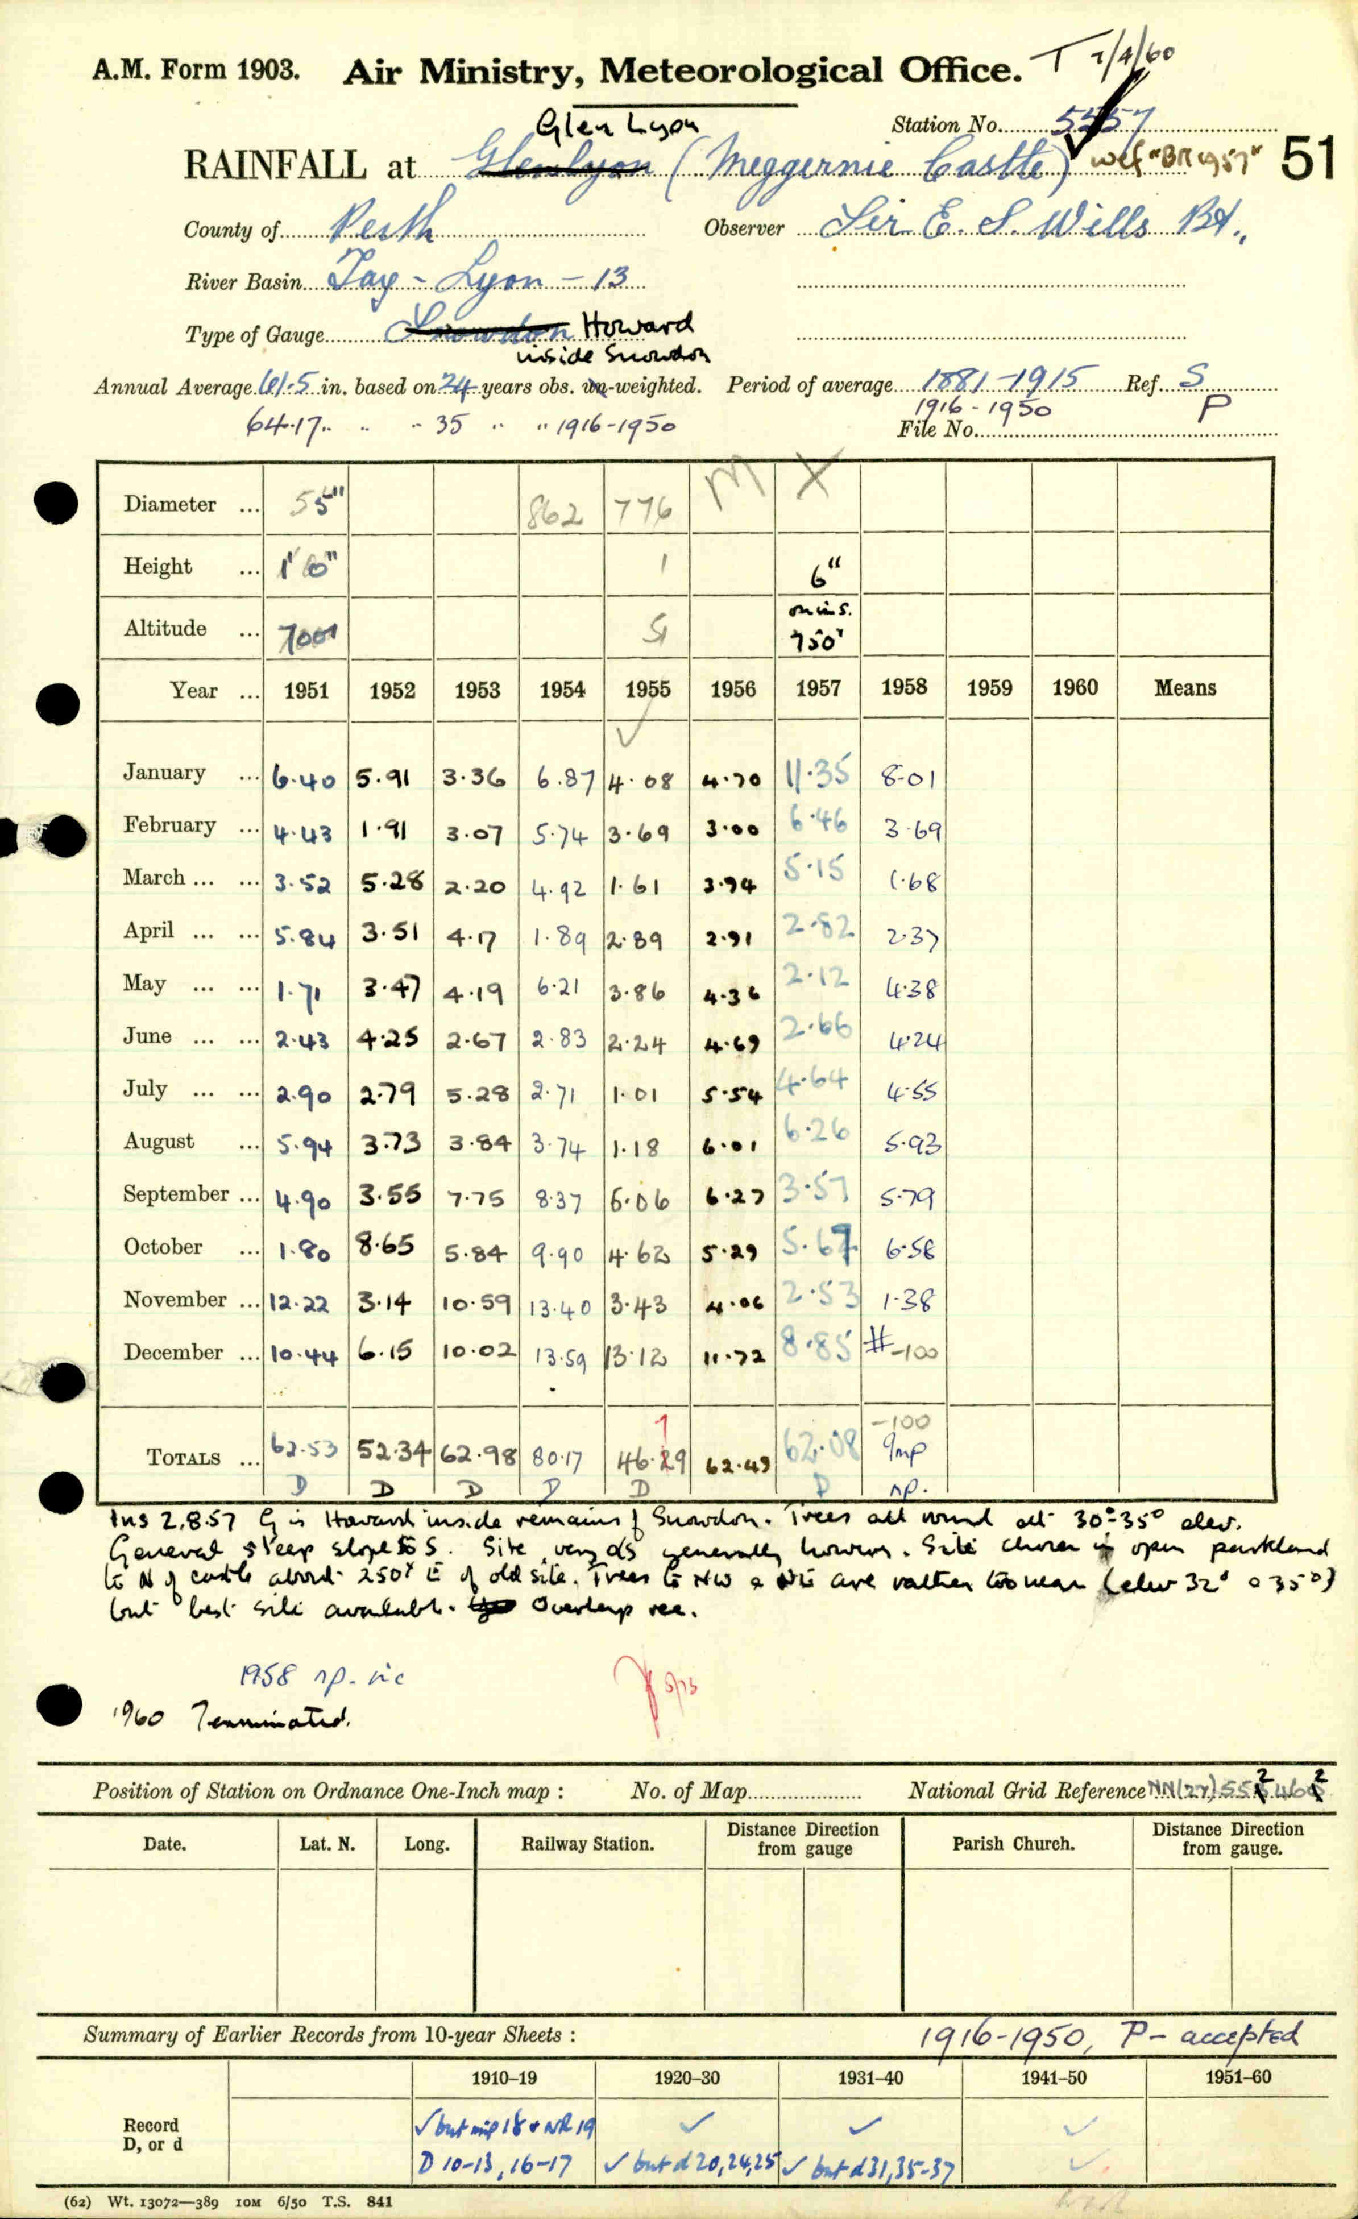 A.M. Form 1903. Air Ministry, Meteorological Office. T 7/4/60
Glen Lyon
Station No. 5557
RAINFALL at Glenlyon (Meggernie Castle) wef "BR 1957" 51
County of Perth Observer Sir E. S. Wills Bt.,
River Basin Tay - Lyon - 13
Type of Gauge Snowdon Howard
inside Snowdon
Annual Average 61.5 in. based on 24 years obs. un-weighted. Period of average 1881-1915 Ref. S
1916-1950 P
64.17 " " - 35 " " 1916-1950 File No.
M X
Diameter ... 5" 862 776
Height ... 1' 0" 1 6"
on ins.
Altitude ... 700' 750'
Year ... 1951 1952 1953 1954 1955 1956 1957 1958 1959 1960 Means
January ... 6.40 5.91 3.36 6.87 4.08 4.70 11.35 8.01
February ... 4.43 1.91 3.07 5.74 3.69 3.00 6.46 3.69
March ... ... 3.52 5.28 2.20 4.92 1.61 3.94 5.15 1.68
April ... ... 5.84 3.51 4.17 1.89 2.39 2.91 2.82 2.37
May ... ... 1.71 3.47 4.19 6.21 3.86 4.36 2.12 4.38
June ... ... 2.43 4.25 2.67 2.83 2.24 4.69 2.66 4.24
July ... ... 2.90 2.79 5.28 2.71 1.01 5.54 4.64 4.55
August ... 5.94 3.73 3.84 3.74 1.18 6.01 6.26 5.93
September ... 4.90 3.55 7.75 8.37 5.06 6.27 3.57 5.79
October ... 1.80 8.65 5.84 9.90 4.62 5.29 5.67 6.58
November ... 12.22 3.14 10.59 13.40 3.43 4.06 2.53 1.38
December ... 10.44 6.15 10.02 13.59 13.12 11.72 8.85 # -100
1 -100
TOTALS ... 62.53 52.34 62.98 80.17 46.29 62.49 62.08 9mp
D D D D D D np.
Ins 2.8.57 G is Howard inside remains of Snowdon. Trees all round at 30°-35° elev.
General steep slope to S. Site very generally however. Site chosen in open parkland
to N of castle about 250y E of old site. Trees to NW & NE are rather too near (elev 32° & 35°)
but best site available. Overlap rec.
1958 np. inc
1960 Terminated.
Position of Station on Ordnance One-Inch map : No. of Map National Grid Reference NN(27) 552 462
Date. Lat. N. Long. Railway Station. Distance from Direction gauge Parish Church. Distance from Direction gauge.
Summary of Earlier Records from 10-year Sheets : 1916-1950, P - accepted
1910–19 1920–30 1931–40 1941–50 1951–60
Record ✓ but mp 18 & NR 19 ✓ ✓ ✓
D, or d D 10-13, 16-17 ✓ but d 20,24,25 ✓ but d 31,35-37 ✓
(62) Wt. 13072—389 10M 6/50 T.S. 841